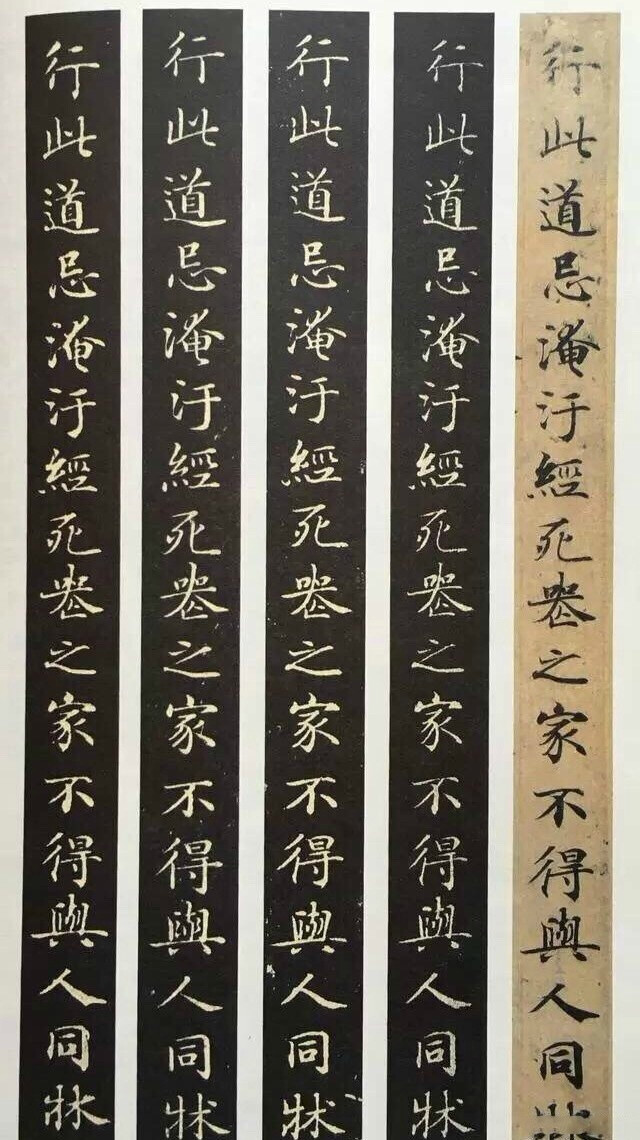 行此道忌淹汙經死丧之家不得與人同牀
行此道忌淹汙經死丧之家不得與人同牀
行此道忌淹汙經死丧之家不得與人同牀
行此道忌淹汙經死丧之家不得與人同牀
行此道忌淹汙經死丧之家不得與人同